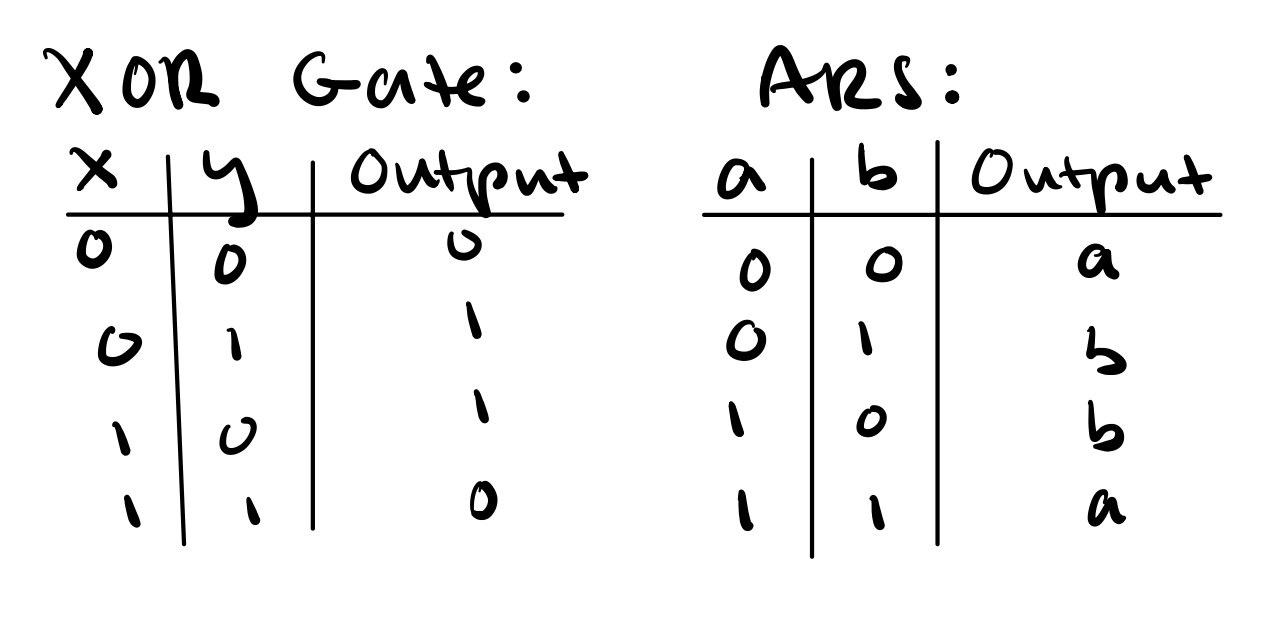 XOR Gate:
x y Output
0 0 0
0 1 1
1 0 1
1 1 0
ARS:
a b Output
0 0 a
0 1 b
1 0 b
1 1 a